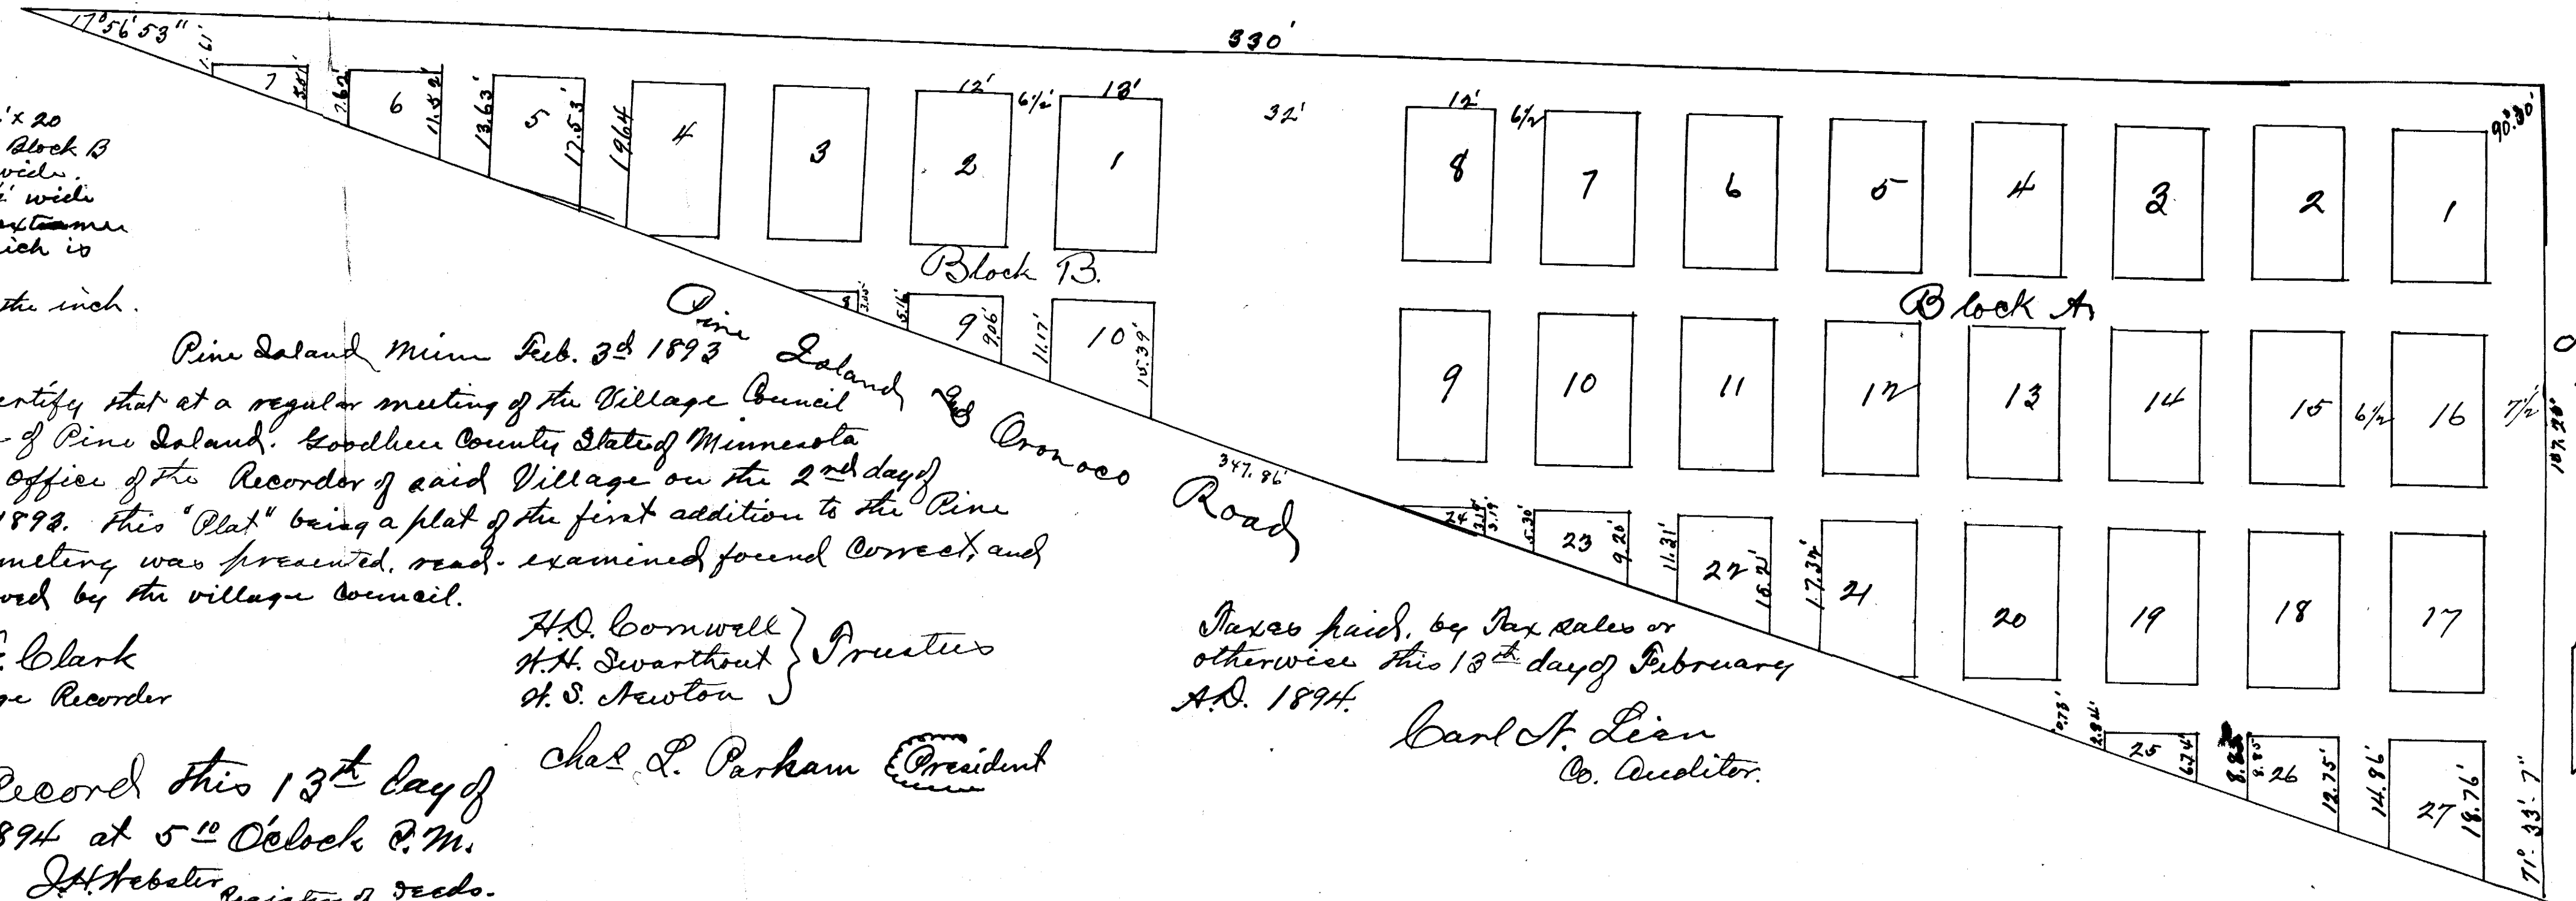 17° 56' 53"
330'
90° 30'
1.61'
7
7.62'
6
11.52'
13.63'
5
17.53'
19.64
4
3
12'
2
6 1/2'
13'
1
32'
12'
8
6 1/2
7
6
5
4
3
2
1
' x 20
Block B
wide.
wide
which is
the inch.
Block B.
Block A
8
5.16'
9
9.06'
11.17'
10
15.39'
9
10
11
12
13
14
15
6 1/2
16
7 1/2
107.20'
Pine Island and Oronoco Road
347.86'
24
3.19'
5.30'
23
9.20'
11.31'
22
15.21'
17.32'
21
20
19
18
17
0.73'
2.84'
25
6.74'
8.85'
26
12.75'
14.86'
27
18.76'
71° 33' 7"
Pine Island Minn Feb. 3d 1893
certify that at a regular meeting of the Village Council
of Pine Island. Goodhue County State of Minnesota
office of the Recorder of said Village on the 2nd day of
1893. this "Plat" being a plat of the first addition to the Pine
metery was presented, read. examined found Correct, and
oved by the village Council.
Clark
ge Recorder
H.D. Cornwell
W.H. Swarthout } Trustees
W.S. Newton
Chas. L. Parkam President
Taxes paid. by Tax sales or
otherwise this 13th day of February
A.D. 1894.
Carl N. Lien
Co. Auditor.
Record this 13th day of
894 at 5 10 O'clock P.M.
J.H. Webster Register of Deeds.